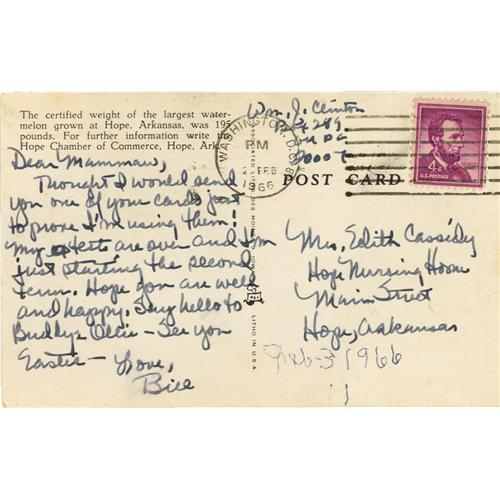 The certified weight of the largest water-
melon grown at Hope, Arkansas, was 195
pounds. For further information write the
Hope Chamber of Commerce, Hope, Ark.
Dear Mammaw,
Thought I would send
you one of your cards just
to prove I'm using them!
My tests are over and I'm
just starting the second
term. Hope you are well
and happy. Say hello to
Buddy & Ollie - See you
Easter - Love,
Bill
Wm. J. Clinton
289
DC
WASHINGTON, D.C.
PM
FEB
1966
POST CARD
4¢
U.S. POSTAGE
Mrs. Edith Cassidy
Hope Nursing Home
Main Street
Hope, Arkansas
Feb 3 1966
LITHO IN U.S.A.